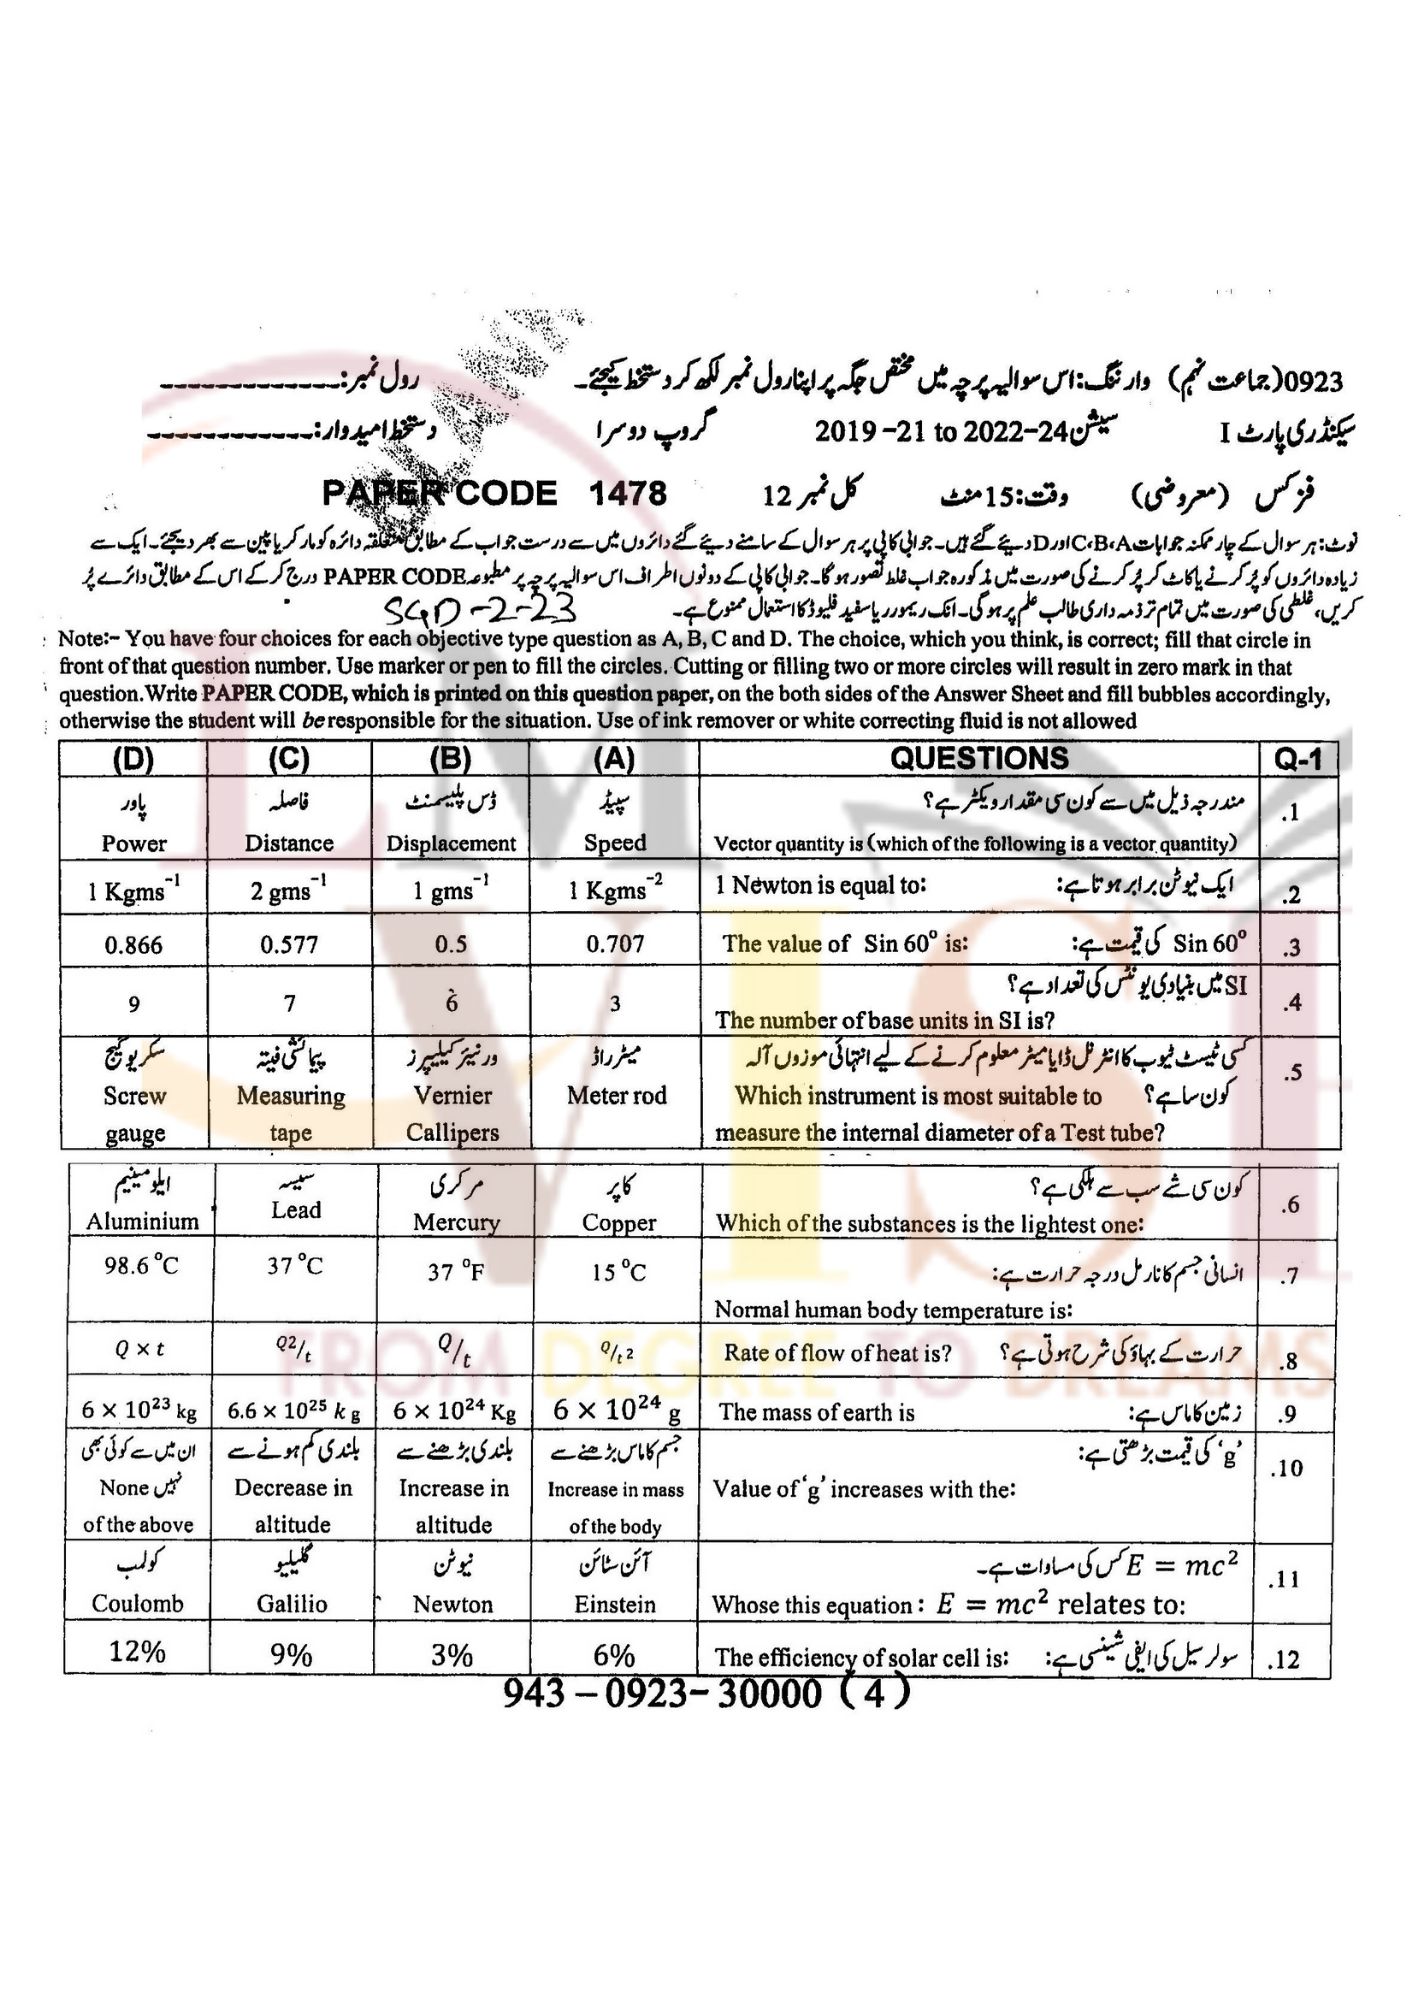 0923(جماعت نہم) وارننگ: اس سوالیہ پرچہ میں مختص جگہ پر اپنا رول نمبر لکھ کر دستخط کیجئے۔ رول نمبر: -------------
سیکنڈری پارٹ I سیشن 2019 –21 to 2022–24 گروپ دوسرا دستخط امیدوار: ------------
فزکس (معروضی) وقت: 15 منٹ کل نمبر 12 PAPER CODE 1478
نوٹ: ہر سوال کے چار ممکنہ جوابات A، B، C اور D دیئے گئے ہیں۔ جوابی کاپی پر ہر سوال کے سامنے دیئے گئے دائروں میں سے درست جواب کے مطابق متعلقہ دائرہ کو مارکر یا پین سے بھر دیجئے۔ ایک سے
زیادہ دائروں کو پُر کرنے یا کاٹ کر پُر کرنے کی صورت میں مذکورہ جواب غلط تصور ہوگا۔ جوابی کاپی کے دونوں اطراف اس سوالیہ پرچہ پر مطبوعہ PAPER CODE درج کرکے اس کے مطابق دائرے پُر
کریں، غلطی کی صورت میں تمام تر ذمہ داری طالب علم پر ہوگی۔ انک ریمور یا سفید فلیوڈ کا استعمال ممنوع ہے۔ SGD-2-23
Note:- You have four choices for each objective type question as A, B, C and D. The choice, which you think, is correct; fill that circle in
front of that question number. Use marker or pen to fill the circles. Cutting or filling two or more circles will result in zero mark in that
question.Write PAPER CODE, which is printed on this question paper, on the both sides of the Answer Sheet and fill bubbles accordingly,
otherwise the student will be responsible for the situation. Use of ink remover or white correcting fluid is not allowed
(D) (C) (B) (A) QUESTIONS Q-1
پاور فاصلہ ڈس پلیسمنٹ سپیڈ مندرجہ ذیل میں سے کون سی مقدار ویکٹر ہے؟ .1
Power Distance Displacement Speed Vector quantity is (which of the following is a vector quantity)
1 Kgms⁻¹ 2 gms⁻¹ 1 gms⁻¹ 1 Kgms⁻² 1 Newton is equal to: ایک نیوٹن برابر ہوتا ہے: .2
0.866 0.577 0.5 0.707 The value of Sin 60° is: Sin 60° کی قیمت ہے: .3
SI میں بنیادی یونٹس کی تعداد ہے؟
9 7 6 3 The number of base units in SI is? .4
سکریو گیج پیمائشی فیتہ ورنیئر کیلیپرز میٹر راڈ کسی ٹیسٹ ٹیوب کا انٹرنل ڈایا میٹر معلوم کرنے کے لیے انتہائی موزوں آلہ .5
Screw Measuring Vernier Meter rod Which instrument is most suitable to کون سا ہے؟
gauge tape Callipers measure the internal diameter of a Test tube?
ایلومینیم سیسہ مرکری کاپر کون سی شے سب سے ہلکی ہے؟ .6
Aluminium Lead Mercury Copper Which of the substances is the lightest one:
98.6 °C 37 °C 37 °F 15 °C انسانی جسم کا نارمل درجہ حرارت ہے: .7
Normal human body temperature is:
Q × t Q2/t Q/t Q/t 2 Rate of flow of heat is? حرارت کے بہاؤ کی شرح ہوتی ہے؟ .8
6 × 10²³ kg 6.6 × 10²⁵ k g 6 × 10²⁴ Kg 6 × 10²⁴ g The mass of earth is زمین کا ماس ہے: .9
ان میں سے کوئی بھی بلندی کم ہونے سے بلندی بڑھنے سے جسم کا ماس بڑھنے سے 'g' کی قیمت بڑھتی ہے: .10
None نہیں Decrease in Increase in Increase in mass Value of 'g' increases with the:
of the above altitude altitude of the body
کولمب گلیلیو نیوٹن آئن سٹائن E = mc² کس کی مساوات ہے۔ .11
Coulomb Galilio Newton Einstein Whose this equation : E = mc² relates to:
12% 9% 3% 6% The efficiency of solar cell is: سولر سیل کی ایفی شینسی ہے: .12
943 – 0923– 30000 (4)
LM VISI
FROM DEGREE TO DREAMS